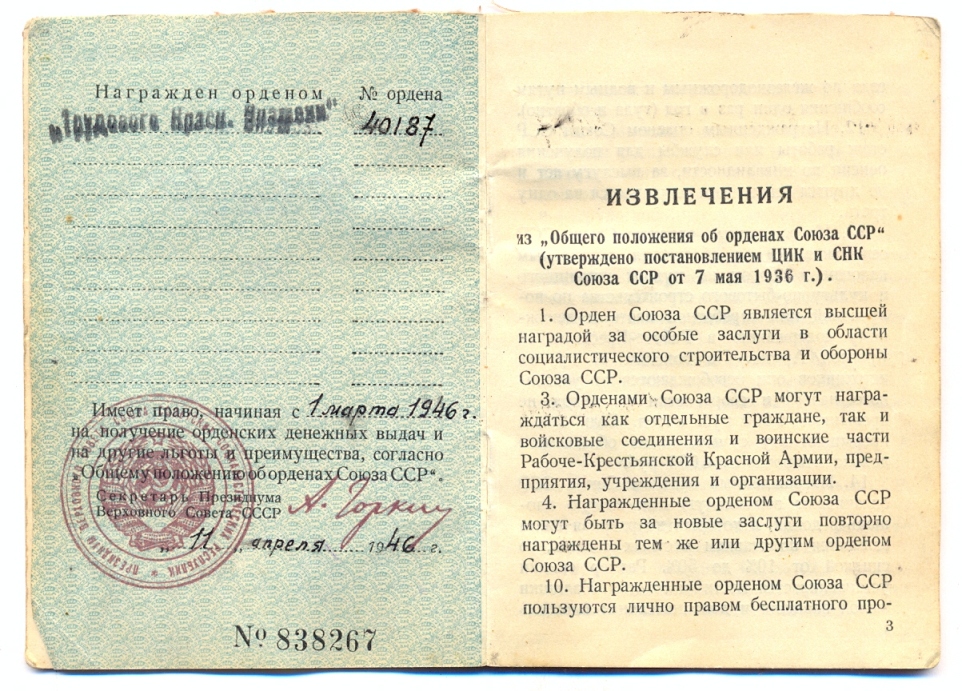 Награжден орденом № ордена
„Трудового Красн. Знамени“ 40187
Имеет право, начиная с 1 марта 1946 г.
на получение орденских денежных выдач и
на другие льготы и преимущества, согласно
„Общему положению об орденах Союза ССР“.
Секретарь Президиума
Верховного Совета СССР А. Горкин
„11“ апреля 1946 г.
№ 838267
ИЗВЛЕЧЕНИЯ
из „Общего положения об орденах Союза ССР“
(утверждено постановлением ЦИК и СНК
Союза ССР от 7 мая 1936 г.).
1. Орден Союза ССР является высшей
наградой за особые заслуги в области
социалистического строительства и обороны
Союза ССР.
3. Орденами Союза ССР могут награ-
ждаться как отдельные граждане, так и
войсковые соединения и воинские части
Рабоче-Крестьянской Красной Армии, пред-
приятия, учреждения и организации.
4. Награжденные орденом Союза ССР
могут быть за новые заслуги повторно
награждены тем же или другим орденом
Союза ССР.
10. Награжденные орденом Союза ССР
пользуются лично правом бесплатного про-
3